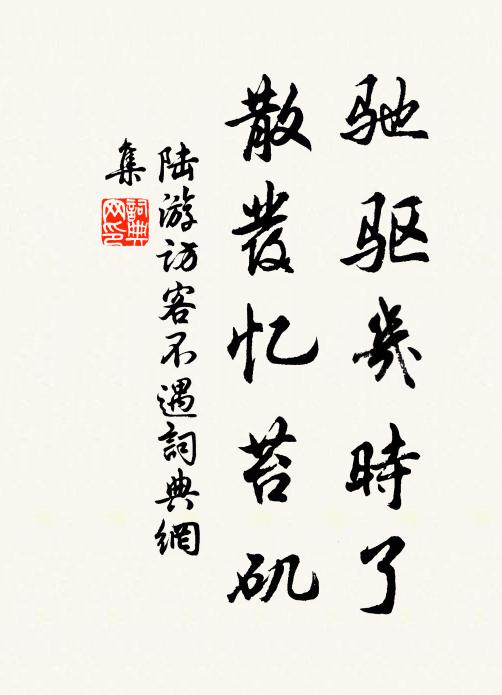 驰驱幾時了
散發忆苔矶
陆游访客不遇詞典網
集
詞典
网印